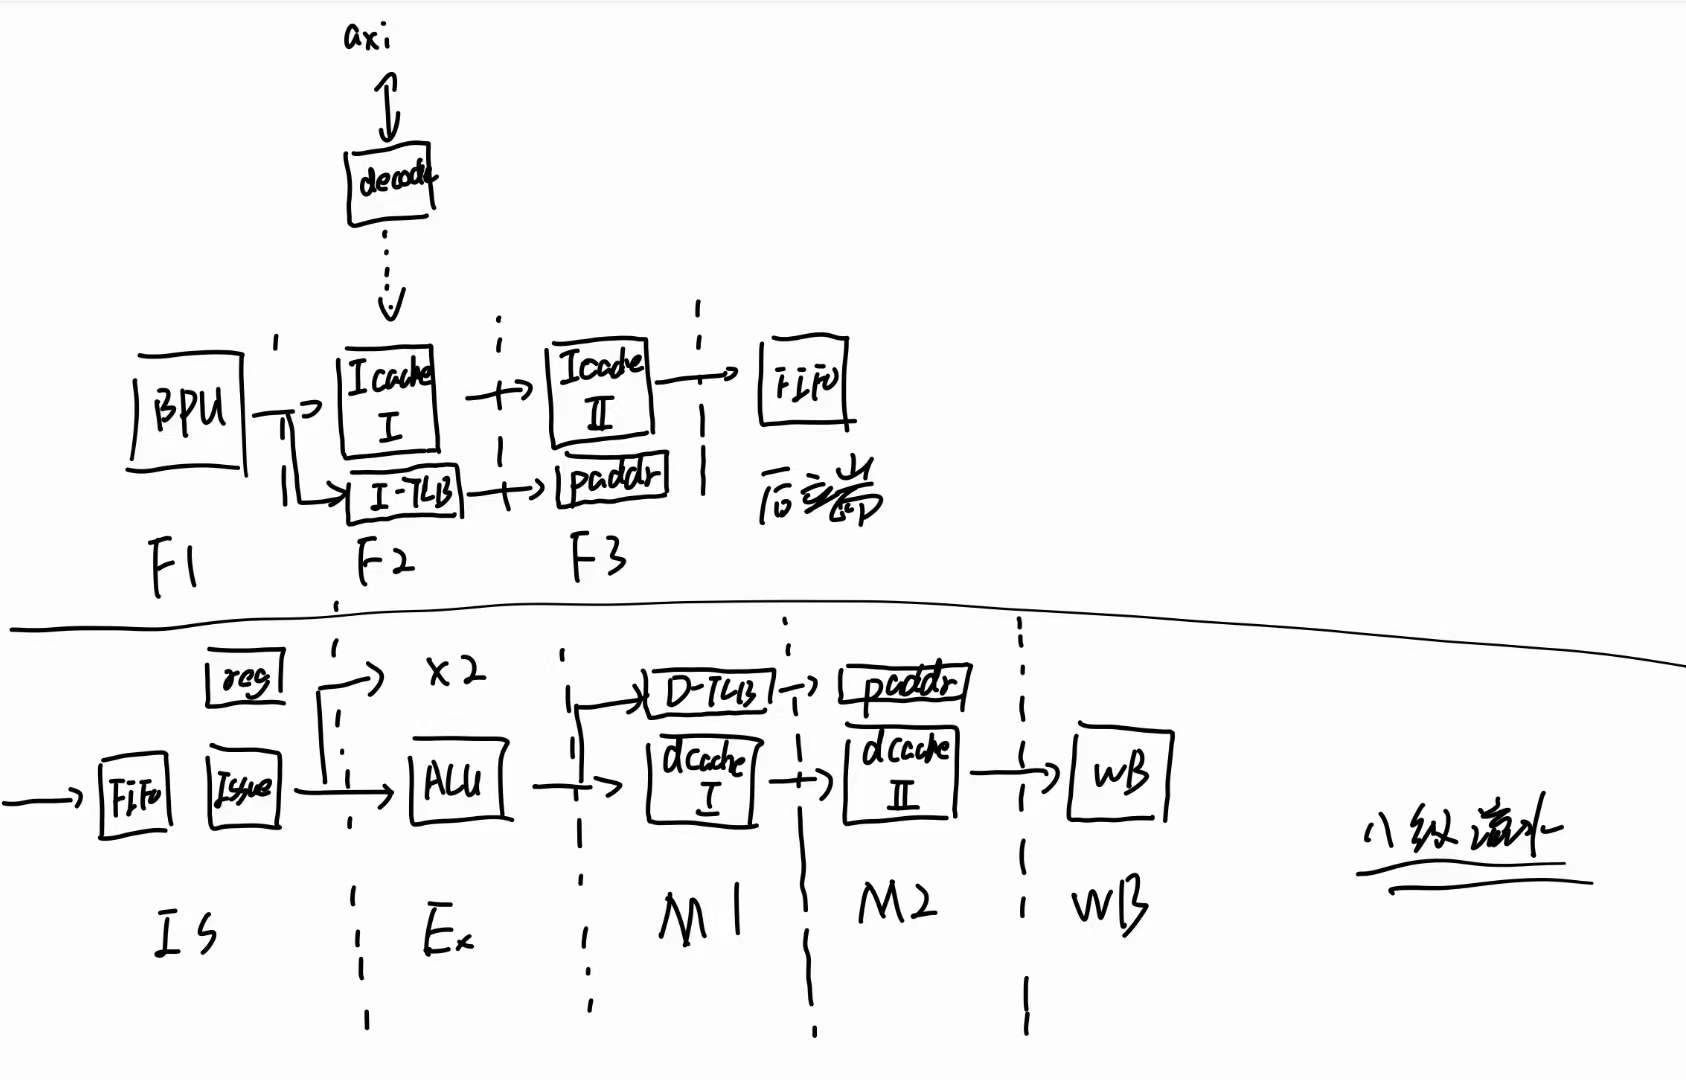 axi
decode
BPU
Icache I
I-TLB
Icache II
paddr
FiFo
后端
F1
F2
F3
reg
x2
FiFo
Issue
ALU
D-TLB
dcache I
paddr
dcache II
WB
IS
Ex
M1
M2
WB
八级流水